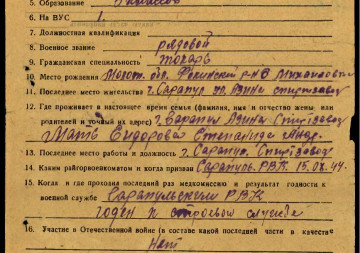 5. Образование
6. На ВУС 1.
7. Должностная квалификация
8. Военное звание рядовой
9. Гражданская специальность токарь
10. Место рождения Молот. обл. р-н
11. Последнее место жительства г. Сарапул спиртзавод
12. Где проживает в настоящее время семья (фамилия, имя и отчество жены или
родителей и точный их адрес) г. Сарапул Азина Спиртзавод
Мать Сидорова Степанида
13. Последнее место работы и должность г. Сарапул. Спиртзавод
14. Каким райгорвоенкоматом и когда призван Сарапуль. РВК 44
15. Когда и где проходил последний раз медкомиссию и результат годности к
военной службе Сарапульский РВК
годен к строевой службе
16. Участие в Отечественной войне (в составе какой последней части в качестве
Нет